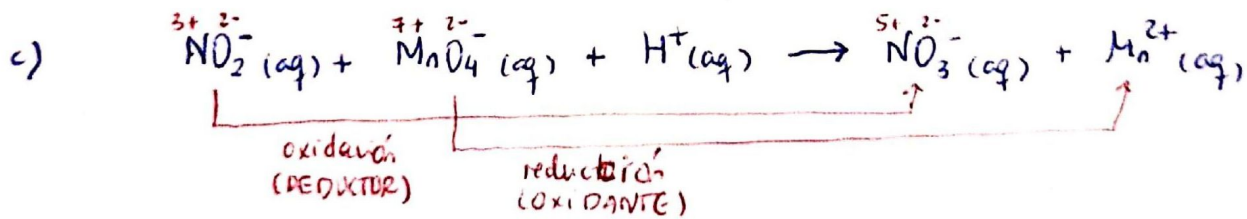 3+ 2- 7+ 2- 5+ 2-
c) NO₂⁻ (aq) + MnO₄⁻ (aq) + H⁺(aq) → NO₃⁻ (aq) + Mn²⁺ (aq)
oxidación
(REDUCTOR)
reducción
(OXIDANTE)